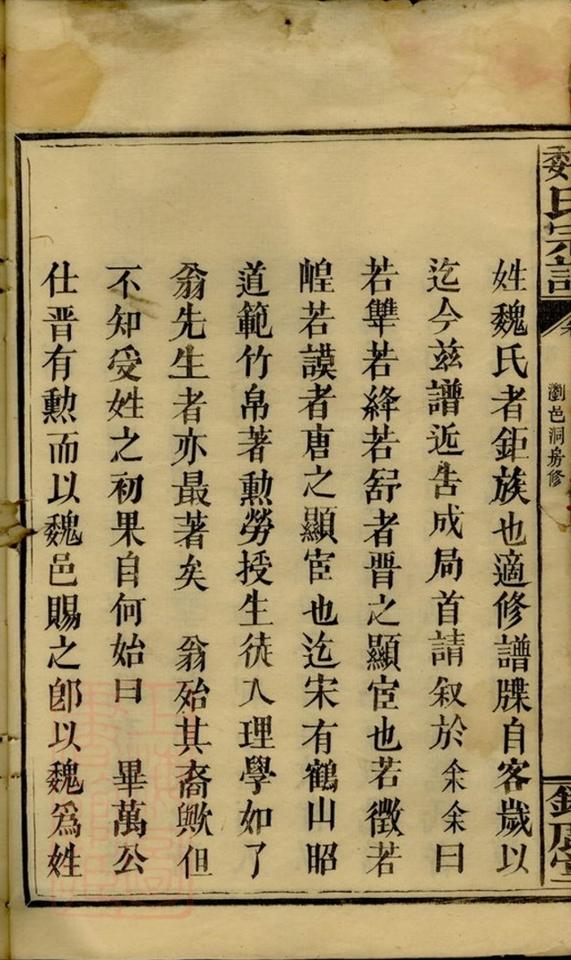 魏氏宗譜
瀏邑洞房修
姓魏氏者鉅族也適修譜牒自客歲以
迄今茲譜近告成局首請叙於余余曰
若犨若絳若舒者晋之顯宦也若徵若
謨者唐之顯宦也迄宋有鶴山昭
道範竹帛著勳勞授生徒入理學如了
翁先生者亦最著矣　翁殆其裔歟但
不知受姓之初果自何始曰　畢萬公
仕晋有勳而以魏邑賜之卽以魏爲姓